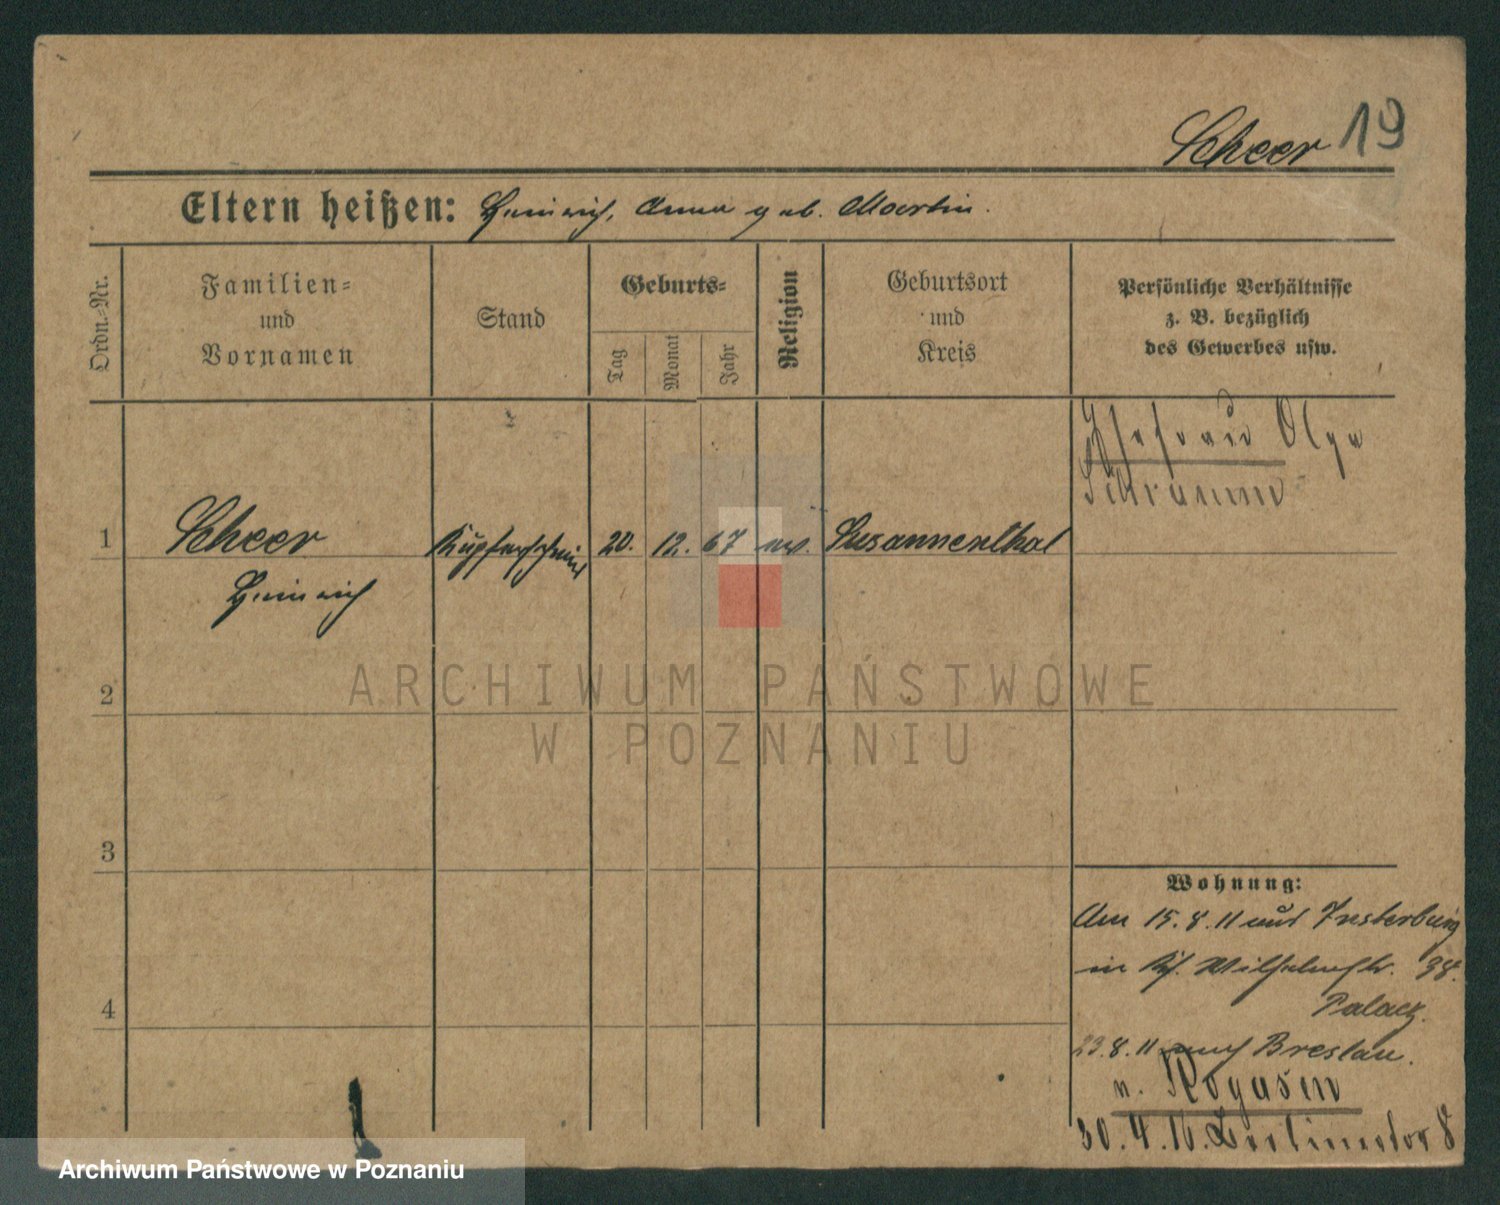 Scheer 19
Eltern heißen: Heinrich, Anna geb. Martin.
Ordn.-Nr.
Familien-
und
Vornamen
Stand
Geburts-
Tag
Monat
Jahr
Religion
Geburtsort
und
Kreis
Persönliche Verhältnisse
z. B. bezüglich
des Gewerbes usw.
Ehefrau Olga
Schramm
1 Scheer Kupferschmied 20. 12. 67 ev. Susannenthal
Heinrich
2
ARCHIWUM PAŃSTWOWE
W POZNANIU
3
Wohnung:
Am 15. 8. 11 aus Insterburg
in Wilhelmstr. 38.
4
23. 8. 11 nach Breslau.
n. Rogasen
30. 4. 16. Berlinertor 8
Archiwum Państwowe w Poznaniu